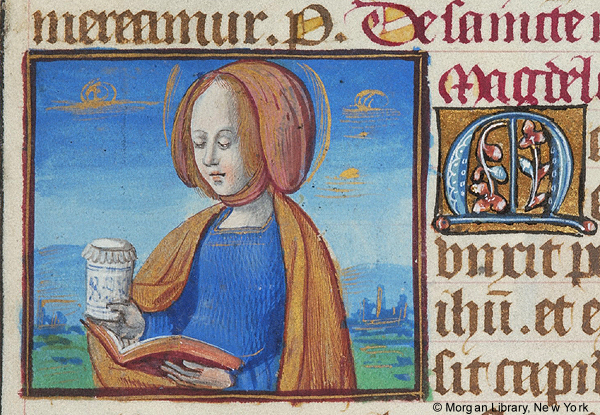 mereamur. P. De sancte
Magdele
M
vnxit p
ihū. et e
sit capi
© Morgan Library, New York